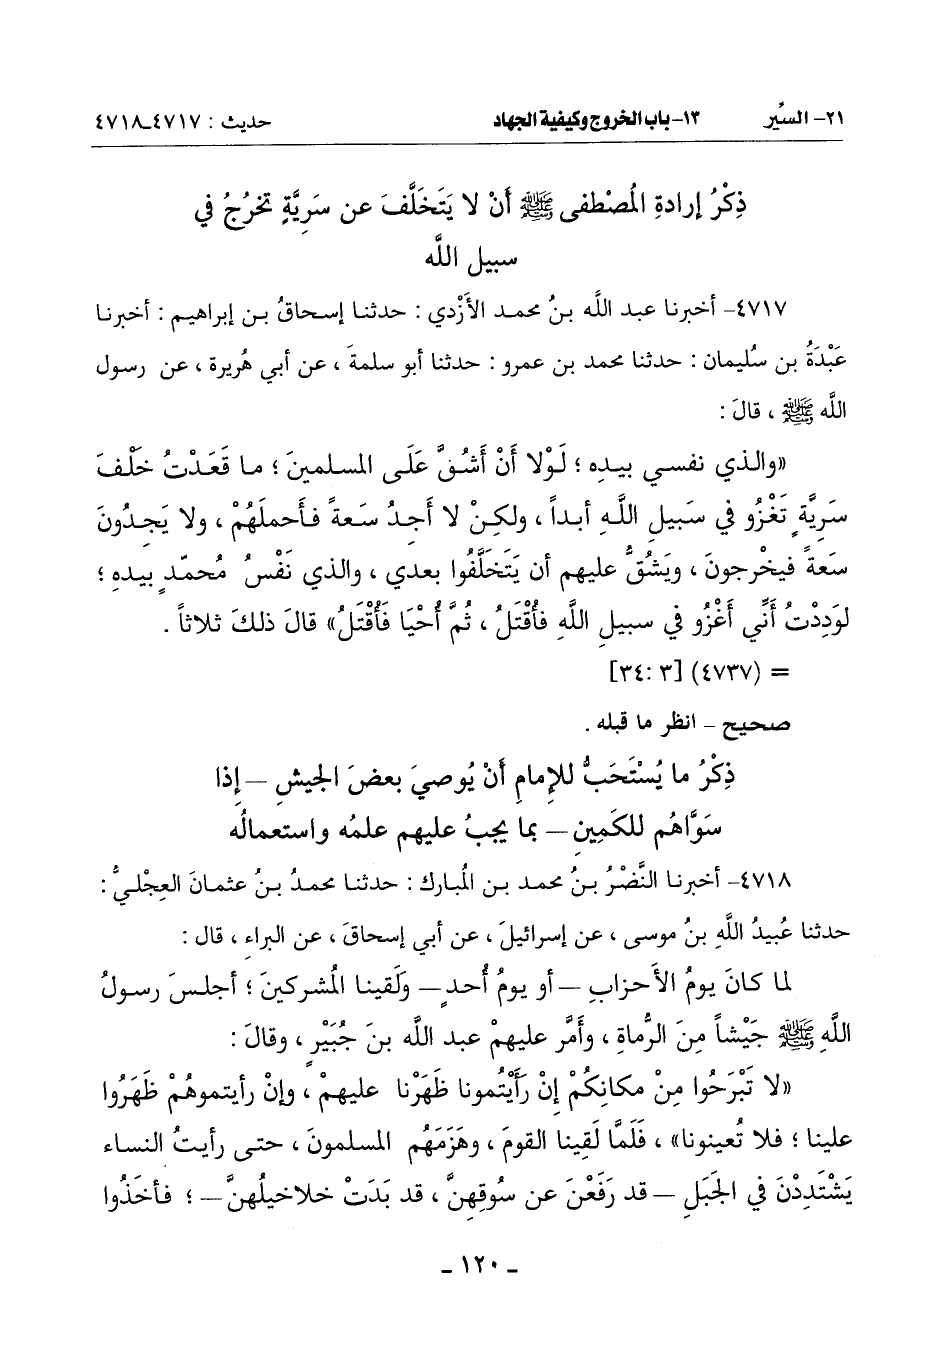 ٢١- السِّيَر ١٣- باب الخروج وكيفية الجهاد حديث : ٤٧١٧-٤٧١٨
ذِكْرُ إرادةِ المُصْطفى ﷺ أَنْ لا يَتَخَلَّفَ عن سَرِيَّةٍ تخرُجُ في
سبيل اللَّه
٤٧١٧- أخبرنا عبد اللَّه بنُ محمد الأَزْدي : حدثنا إسحاقُ بن إبراهيم : أخبرنا
عَبْدَةُ بن سُليمان : حدثنا محمد بن عمرو : حدثنا أبو سلمةَ ، عن أبي هُريرة ، عن رسول
اللَّه ﷺ ، قالَ :
«والذي نفسي بيدِه ؛ لَوْلا أَنْ أَشُقَّ عَلَى المسلمينَ ؛ ما قَعَدْتُ خَلْفَ
سَرِيَّةٍ تَغْزُو في سَبيلِ اللَّهِ أبداً ، ولكِنْ لا أَجِدُ سَعةً فأَحملَهُمْ ، ولا يَجِدُونَ
سَعةً فيخْرجونَ ، ويَشُقُّ عليهم أن يَتَخَلَّفُوا بعدي ، والذي نَفْسُ مُحمّدٍ بيدهِ ؛
لوَدِدْتُ أَنِّي أَغْزُو في سبيلِ اللَّهِ فأُقْتَلُ ، ثُمَّ أُحْيَا فَأُقْتَلُ» قالَ ذلكَ ثلاثاً .
= (٤٧٣٧) [٣ :٣٤]
صحيح - انظر ما قبله .
ذِكْرُ ما يُسْتَحَبُّ للإِمامِ أَنْ يُوصيَ بعضَ الجيشِ – إذا
سَوَّاهُم للكَمِينِ – بما يجبُ عليهم علمُه واستعمالُه
٤٧١٨- أخبرنا النَّضْرُ بنُ محمد بنِ المُبارك : حدثنا محمدُ بنُ عثمانَ العِجْليُّ :
حدثنا عُبيدُ اللَّهِ بنُ موسى ، عن إسرائيلَ ، عن أبي إسحاقَ ، عن البراء ، قال :
لما كانَ يومُ الأَحزابِ – أو يومُ أُحدٍ – ولَقينا المُشركينَ ؛ أجلسَ رسولُ
اللَّهِ ﷺ جَيْشاً مِنَ الرُّماةِ ، وأَمَّر عليهمْ عبد اللَّه بنَ جُبَيْرٍ ، وقالَ :
«لا تَبْرَحُوا مِنْ مكانِكُمْ إنْ رَأَيْتُمونا ظَهَرْنا عليهمْ ، وإنْ رأيتموهُمْ ظَهَرُوا
علينا ؛ فلا تُعينونا» ، فَلَمَّا لَقِينا القومَ ، وهَزَمَهُم المسلمونَ ، حتى رأيتُ النساء
يَشْتَدِدْنَ في الجَبَلِ – قد رَفَعْنَ عن سُوقِهِنَّ ، قد بَدَتْ خلاخيلُهنَّ – ؛ فأخَذُوا
- ١٢٠ -